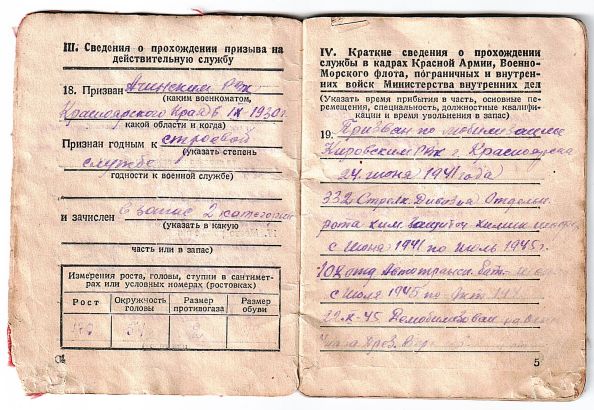 III. Сведения о прохождении призыва на
действительную службу
18. Призван Ачинским РВК
(каким военкоматом,
Красноярского Края в IX-1930г.
какой области и когда)
Признан годным к строевой
(указать степень
службе
годности к военной службе)
и зачислен в запас 2 категории
(указать в какую
часть или в запас)
Измерения роста, головы, ступни в сантимет-
рах или условных номерах (ростовках)
Рост Окружность головы Размер противогаза Размер обуви
4
IV. Краткие сведения о прохождении
службы в кадрах Красной Армии, Военно-
Морского флота, пограничных и внутрен-
них войск Министерства внутренних дел
(Указать время прибытия в часть, основные пере-
мещения, специальность, должностные квалифи-
кации и время увольнения в запас)
19. Призван по мобилизации
Кировским РВК г. Красноярска
24 июня 1941 года
332 Стрелк. Дивизия Отдельн.
рота хим. защиты химик
с Июня 1941 по Июль 1945г.
отд Автотрансп. бат.
с Июля 1945 по Окт.
-X-45 Демобилизован на
Указа През. Вер.
5